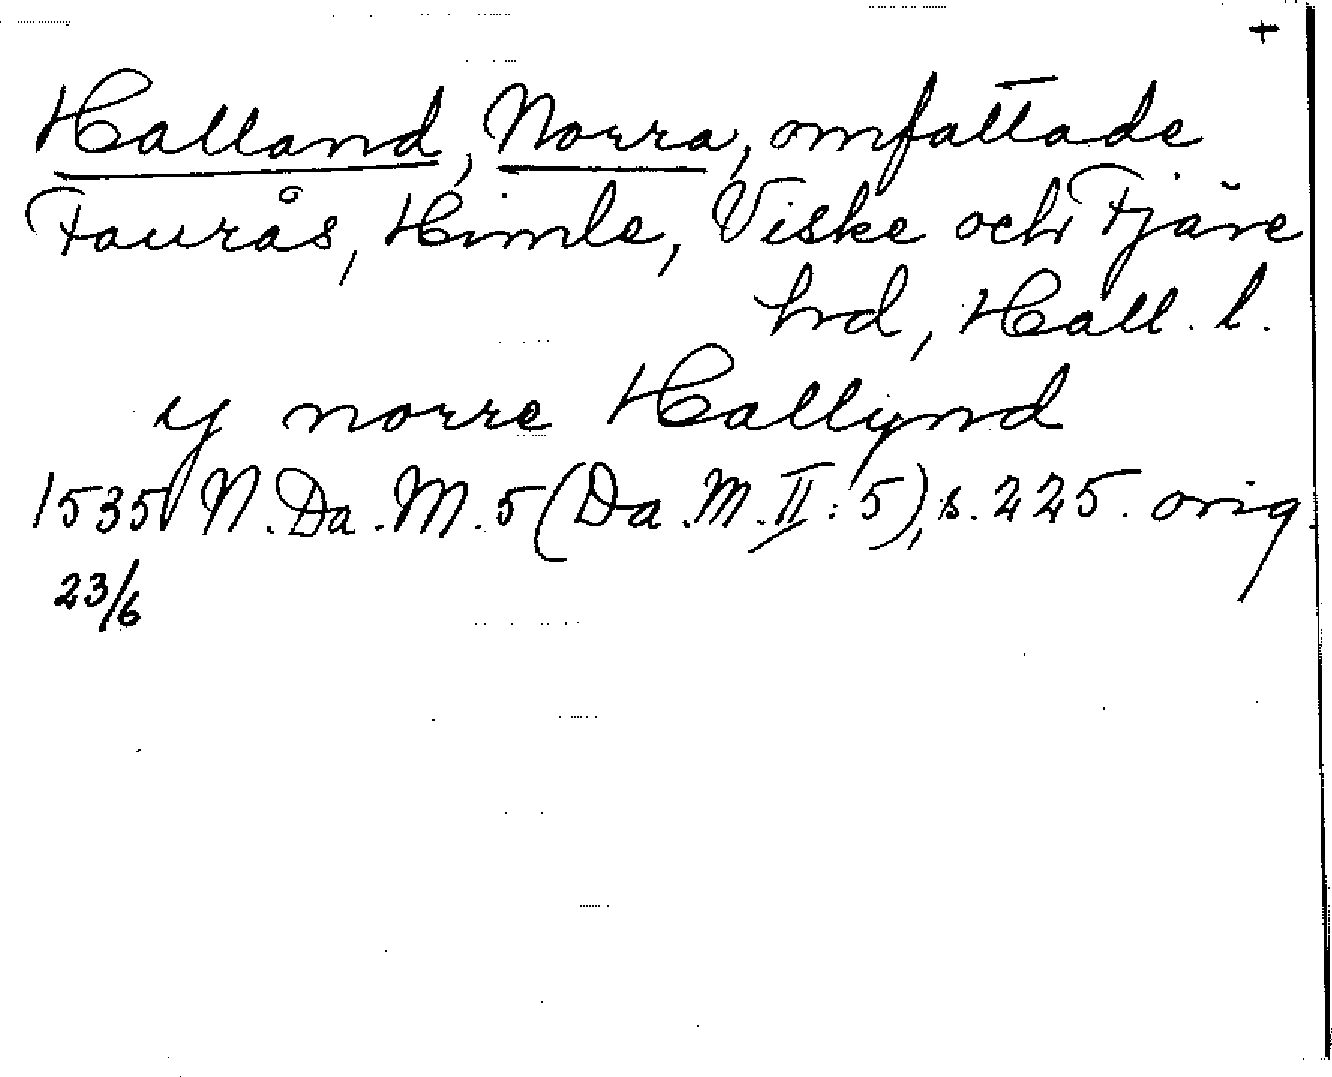 +
Halland, Norra, omfattade
Faurås, Himle, Viske och Fjäre
hrd, Hall. l.
y norre Hallynd
1535 N. Da. M. 5 (Da. M. II: 5), s. 225. orig.
23/6